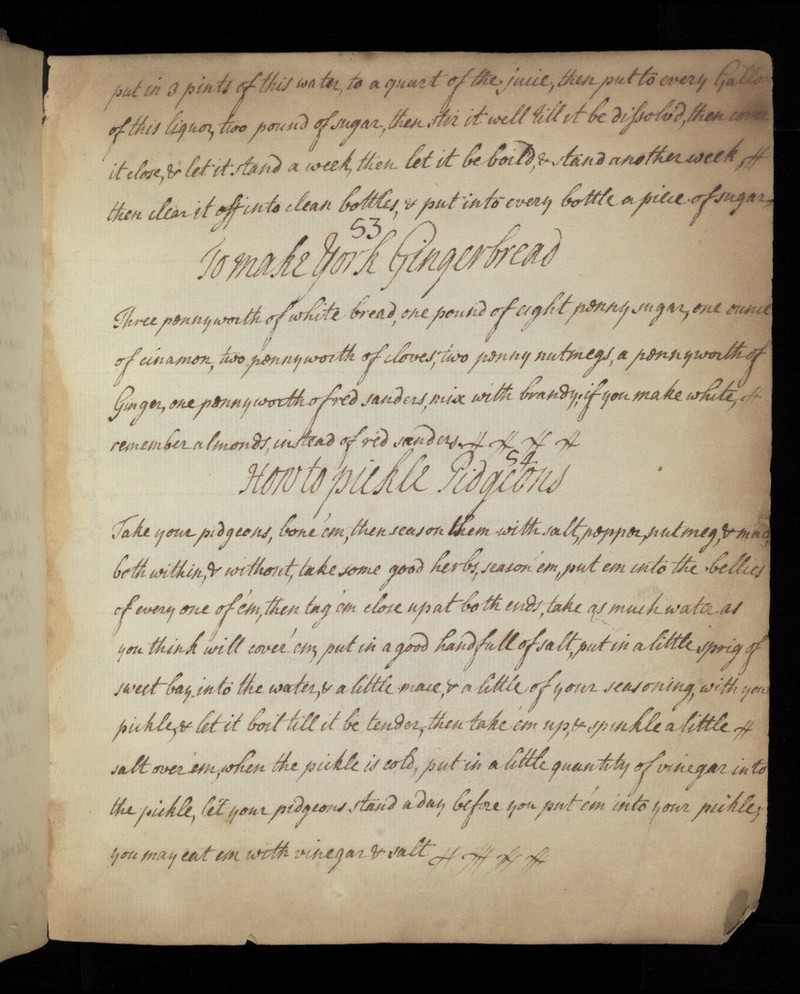 put in 3 pints of this water, to a quart of the juice, then put to every Gallon
of this liquor, two pound of sugar, then stir it well till it be dissolvd, then cover
it close, & let it stand a week, then let it be boild, & stand another week
then clear it off into clean bottles, & put into every bottle a piece of sugar
53
To make York Gingerbread
Three pennyworth of white bread, one pound of eight penny sugar, one ounce
of cinamon, two pennyworth of cloves, two penny nutmegs, a pennyworth of
Ginger, one pennyworth of red sanders, mix with brandy, if you make white,
remember almonds, instead of red sanders.
54
How to pickle Pidgeons
Take your pidgeons, bone 'em, then season them with salt, pepper, nutmeg, & mace
both within, & without, take some good herbs, season 'em, put em into the bellies
of every one of 'em, then tag 'em close up at both ends, take as much water as
you think will cover 'em, put in a good handfull of salt, put in a little sprig of
sweet bay, into the water, & a little mace, & a little of your seasoning, with your
pickle, & let it boil till it be tender, then take 'em up, & sprinkle a little
salt over 'em, when the pickle is cold, put in a little quantity of vinegar into
the pickle, let your pidgeons stand a day before you put 'em into your pickle,
you may eat em with vinegar & salt